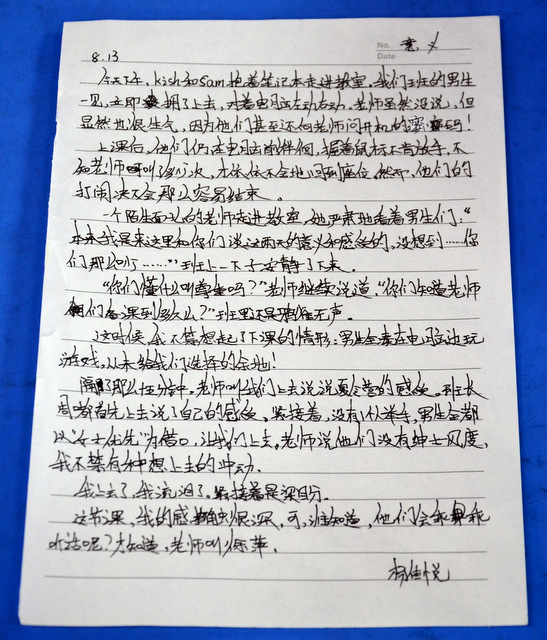 No.
8.13 Date
今天下午,kish和Sam抱着笔记本走进教室,我们班的男生
一见,立即拥了上去,对着电脑左动右动,老师虽然没说,但
显然也很生气,因为他们甚至还向老师问开机的密码!
上课后,他们仍在电脑的伴侧,握着鼠标不肯放手,不
知老师叫了多少次,才依依不舍地回到座位,然而,他们的
打闹决不会那么容易结束。
一个陌生面孔的老师走进教室,她严肃地看着男生们:“
本来我是来这里和你们谈这两天的意义和感受的,没想到……你
们那么吖……”班上一下子安静了下来。
“你们懂什么叫尊重吗?”老师继续说道,“你们知道老师
们备课到多久么?”班里还是鸦雀无声。
这时候,我不禁想起了下课的情形:男生全凑在电脑边玩
游戏,从未给我们选择的余地!
隔了那么几分钟,老师叫我们上去说说夏令营的感受,班长
周首先上去说了自己的感受,紧接着,没有1个人举手,男生全都
以“女士优先”为借口,让我们上去,老师说他们没有绅士风度,
我不禁有种想上去的冲动.
我上去了,我流泪了.紧接着是梁自分.
这节课,我的感触很深,可,谁知道,他们会乖乖
听话呢?才知道,老师叫徐萍.
杨佳悦